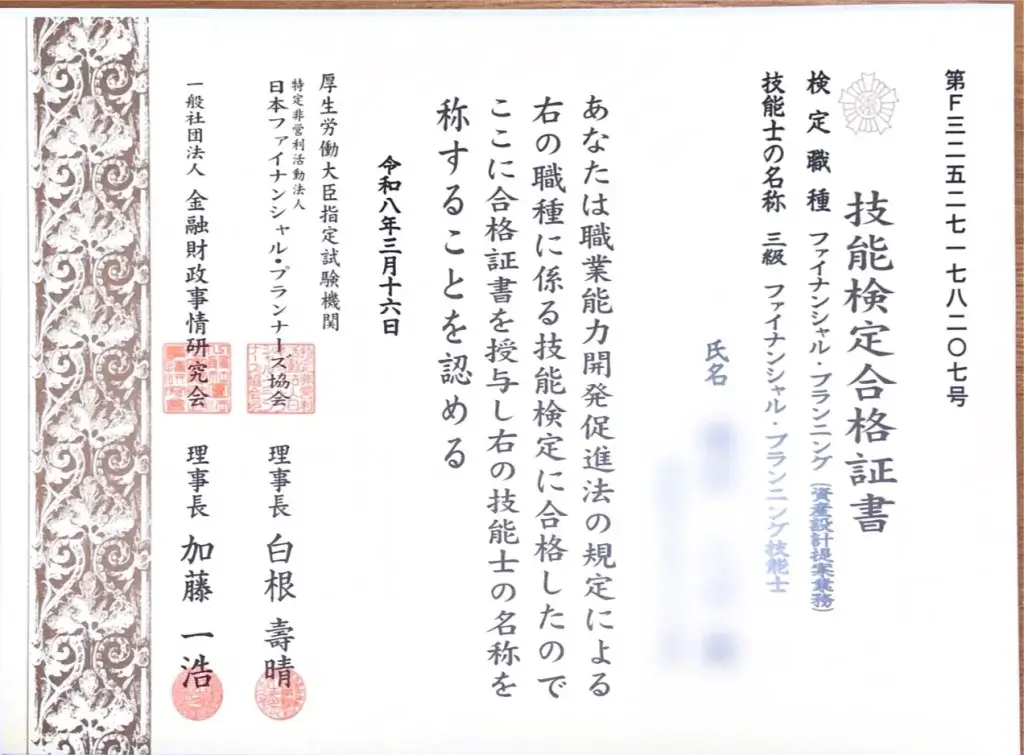 第F三二五二七一七八二〇七号
技能検定合格証書
検定職種 ファイナンシャル・プランニング(資産設計提案業務)
技能士の名称 三級 ファイナンシャル・プランニング技能士
氏名
あなたは職業能力開発促進法の規定による
右の職種に係る技能検定に合格したので
ここに合格証書を授与し右の技能士の名称を
称することを認める
令和八年三月十六日
厚生労働大臣指定試験機関
特定非営利活動法人
日本ファイナンシャル・プランナーズ協会 理事長 白根壽晴
一般社団法人 金融財政事情研究会 理事長 加藤一浩